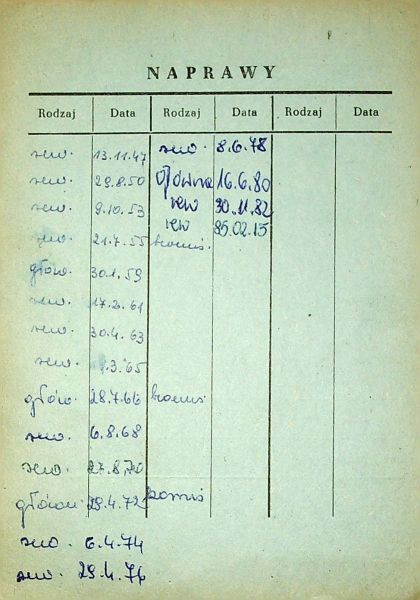 NAPRAWY
Rodzaj Data Rodzaj Data Rodzaj Data
rew. 13.11.47 rew. 8.6.78
rew. 29.8.50 główna 16.6.80
rew. 9.10.53 rew 30.11.82
rew. 21.7.55 rew 85.02.15
głów. 30.1.59
rew. 17.2.61
rew. 30.4.63
rew. .3.65
głów. 28.7.66
rew. 6.8.68
rew. 27.8.70
główn. 29.4.72
rew 6.4.74
rew. 29.4.76